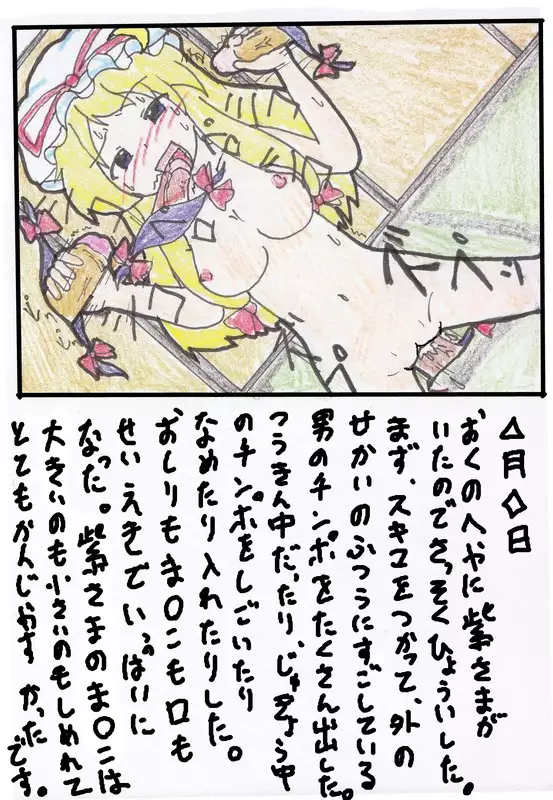 △月◇日
おくのへやに紫さまが
いたのでさっそくひょういした。
まず、スキマをつかって、外の
せかいのふつうにすごしている
男のチンポをたくさん出した。
つうきん中だったり、じゅぎょう中
のチンポをしごいたり
なめたり入れたりした。
おしりもま〇こも口も
せいえきでいっぱいに
なった。紫さまのま〇こは
大きいのも小さいのもしめれて
とてもかんじやすかったです。
ズプッ